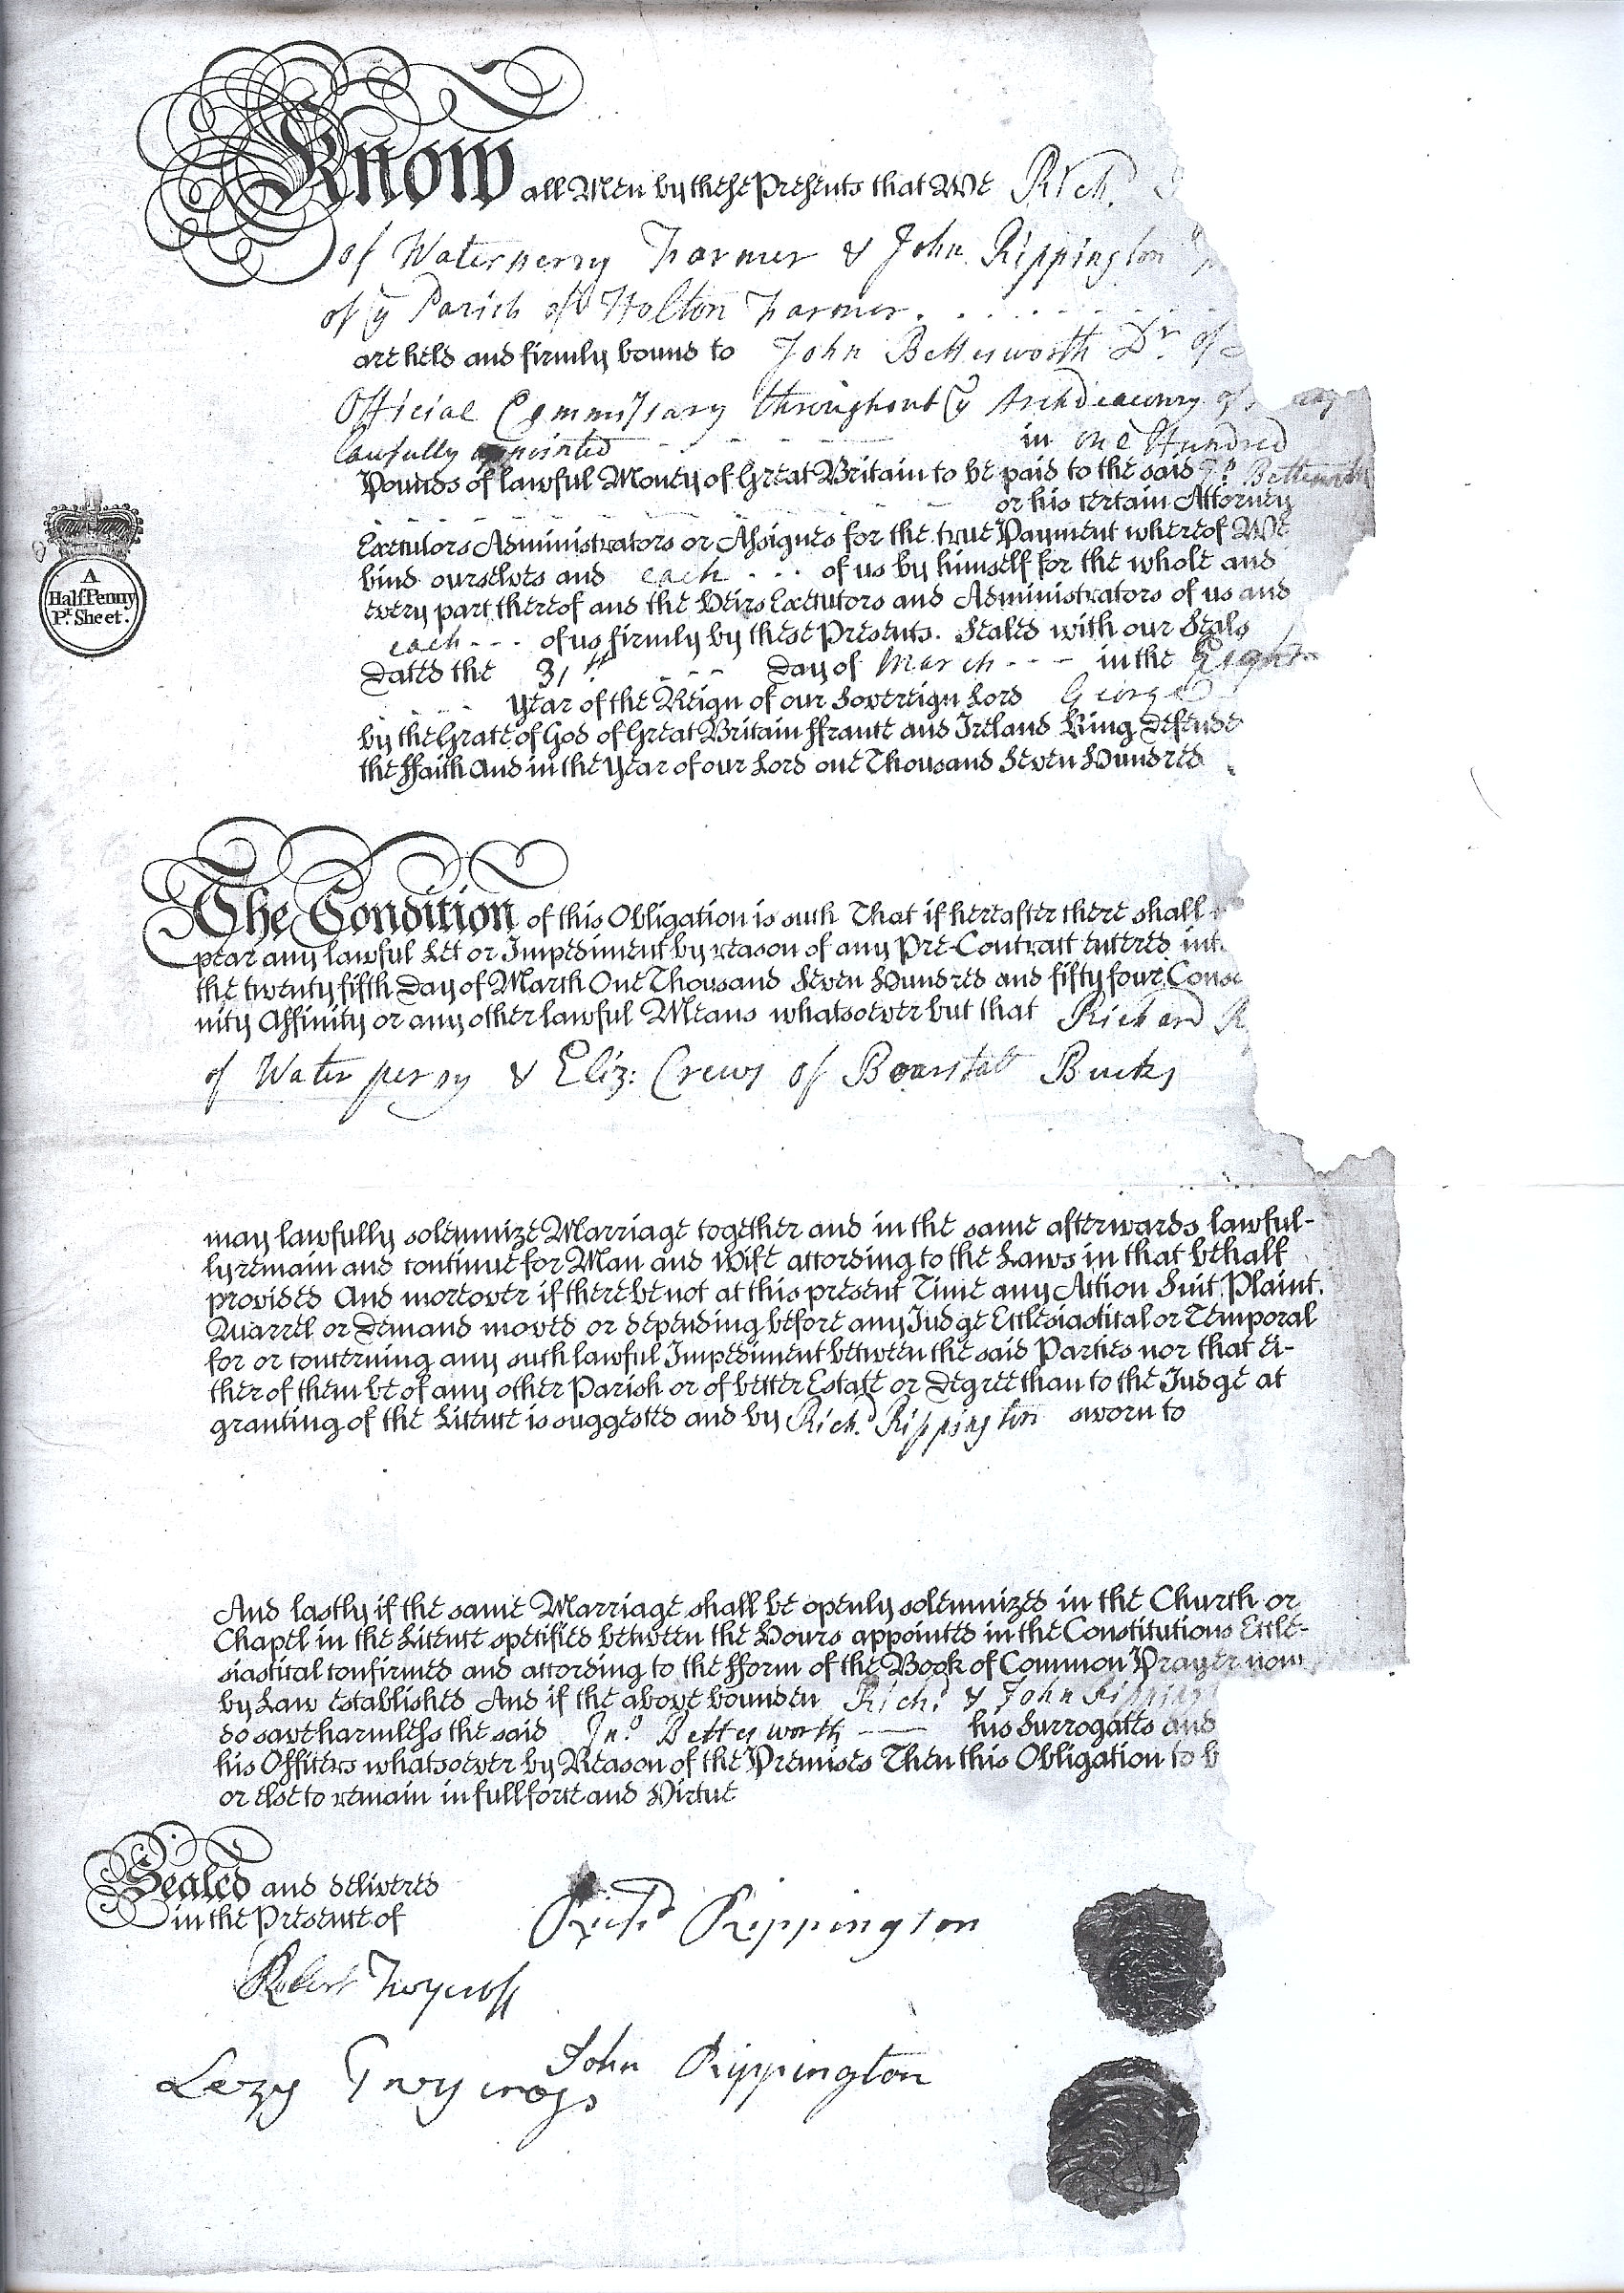 Know all Men by these Presents that We Rich.
of Waterperry Farmer & John Rippington
of ye Parish of Holton Farmer.
are held and firmly bound to John Bettesworth Dr. of
Official Commissary throughout ye Archdeaconry of
lawfully appointed in one Hundred
Pounds of lawful Money of Great Britain to be paid to the said Jno. Bettesworth
or his certain Attorney
Executors Administrators or Assigns for the true Payment whereof We
bind ourselves and each of us by himself for the whole and
every part thereof and the Heirs Executors and Administrators of us and
each of us firmly by these Presents. Sealed with our Seals
Dated the 31st day of March in the Eight
Year of the Reign of our Sovereign Lord George
by the Grace of God of Great Britain ffrance and Ireland King Defende
the ffaith And in the Year of our Lord one Thousand Seven Hundred
A
HalfPenny
Pr. Sheet.
The Condition of this Obligation is such That if hereafter there shall
pear any lawful Let or Impediment by reason of any Pre-Contract entered int
the twenty fifth Day of March One Thousand Seven Hundred and fifty four Cons
nity Affinity or any other lawful Means whatsoever but that Richard R
of Waterperry & Eliz: Crews of Boarstall Bucks
may lawfully solemnize Marriage together and in the same afterwards lawful-
ly remain and continue for Man and Wife according to the Laws in that behalf
provided And moreover if there be not at this present Time any Action Suit Plaint.
Quarrel or Demand moved or depending before any Judge Ecclesiastical or Temporal
for or concerning any such lawful Impediment between the said Parties nor that ei-
ther of them be of any other Parish or of better Estate or Degree than to the Judge at
granting of the Licence is suggested and by Richd. Rippington sworn to
And lastly if the same Marriage shall be openly solemnized in the Church or
Chapel in the Licence specified between the Hours appointed in the Constitutions Eccle-
siastical confirmed and according to the fform of the Book of Common Prayer now
by Law established And if the above bounden Richd. & John Ripping
do save harmless the said Jno. Bettesworth his Surrogates and
his Officers whatsoever by Reason of the Premises Then this Obligation to b
or else to remain in full force and Virtue
Sealed and delivered
in the Presence of
Richd Rippington
Robert Twycross
John Rippington
Lezy Twycross